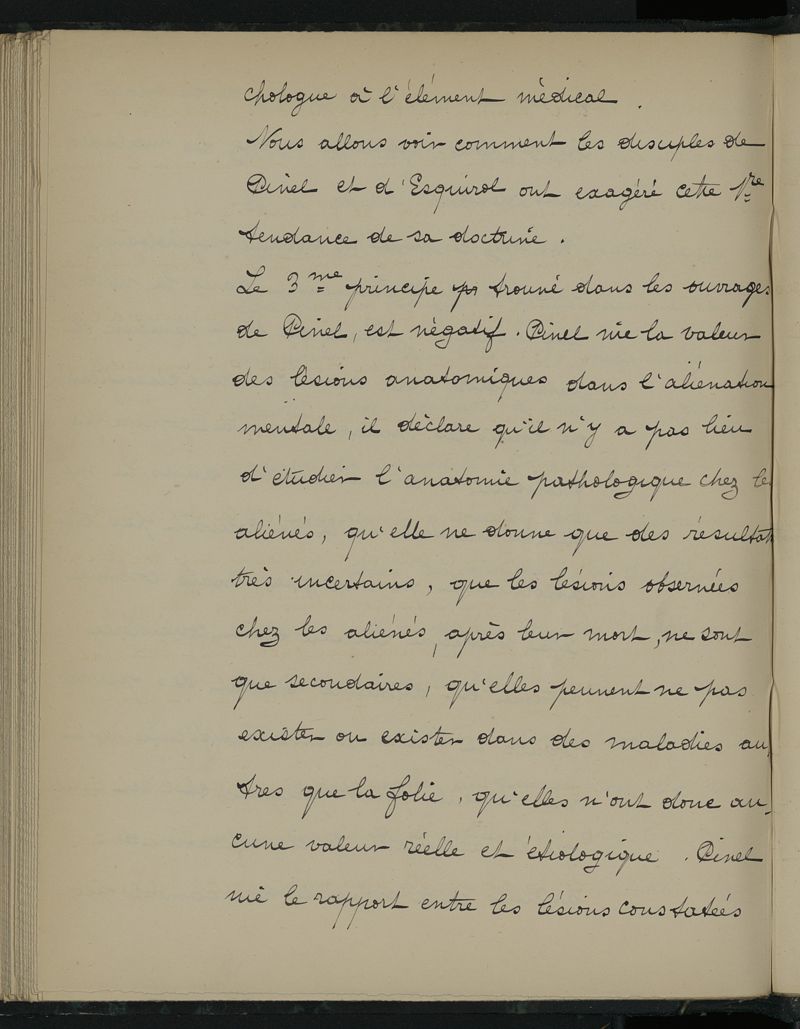 chologue à l'élément médical.
Nous allons voir comment les disciples de
Pinel et d'Esquirol ont exagéré cette 1re
tendance de sa doctrine.
Le 3me principe trouvé dans les ouvrages
de Pinel, est négatif. Pinel nie la valeur
des lésions anatomiques dans l'aliénation
mentale, il déclare qu'il n'y a pas lieu
d'étudier l'anatomie pathologique chez les
aliénés, qu'elle ne donne que des résultats
très incertains, que les lésions observées
chez les aliénés, après leur mort, ne sont
que secondaires, qu'elles peuvent ne pas
exister ou exister dans des maladies au-
tres que la folie, qu'elles n'ont donc au-
cune valeur réelle et étiologique. Pinel
nie le rapport entre les lésions constatées